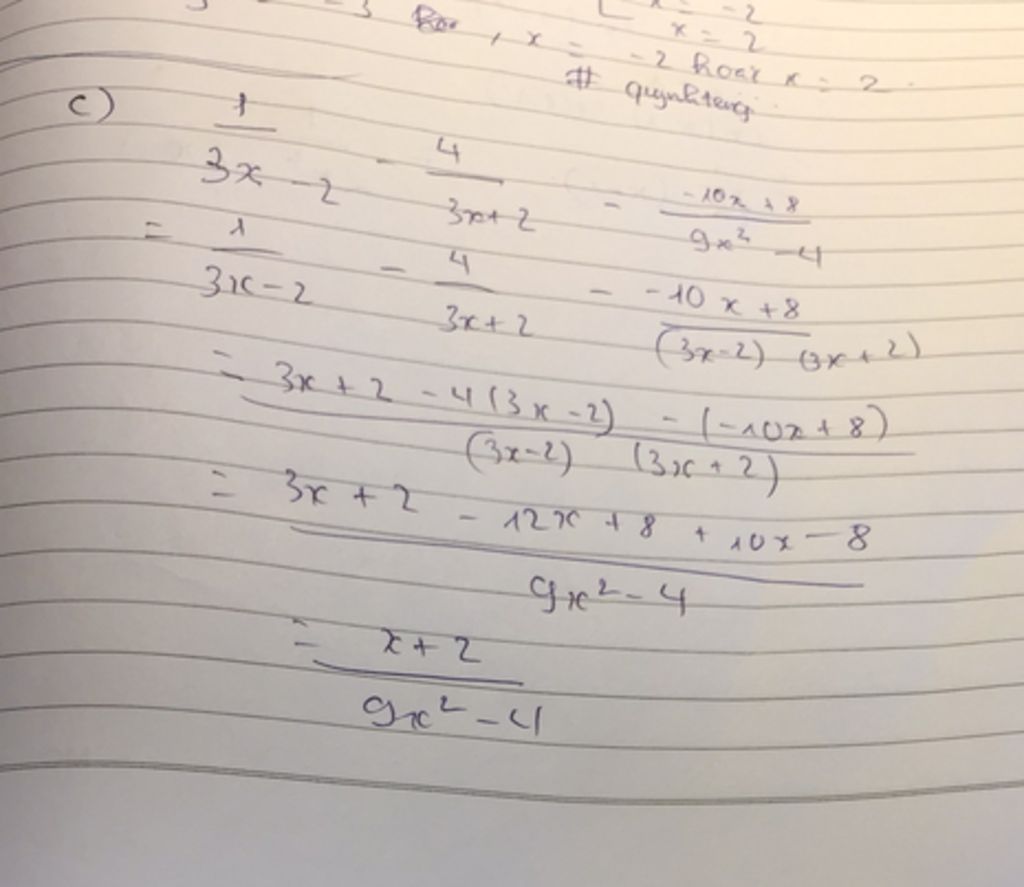 x = -2
x = 2
, x = -2 hoặc x = 2.
# quynhteng
c) 1/(3x - 2) - 4/(3x + 2) - (-10x + 8)/(9x² - 4)
= 1/(3x - 2) - 4/(3x + 2) - (-10x + 8)/((3x - 2)(3x + 2))
= (3x + 2 - 4(3x - 2) - (-10x + 8))/((3x - 2)(3x + 2))
= (3x + 2 - 12x + 8 + 10x - 8)/(9x² - 4)
= (x + 2)/(9x² - 4)